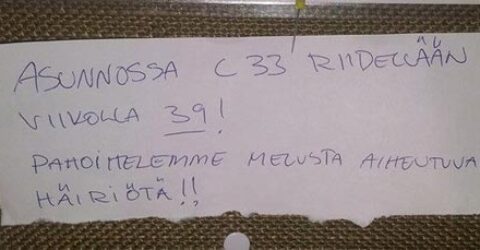 ASUNNOSSA C 33 RIIDELLÄÄN
VIIKOLLA 39!
PAHOITTELEMME MELUSTA AIHEUTUVA
HÄIRIÖTÄ!!